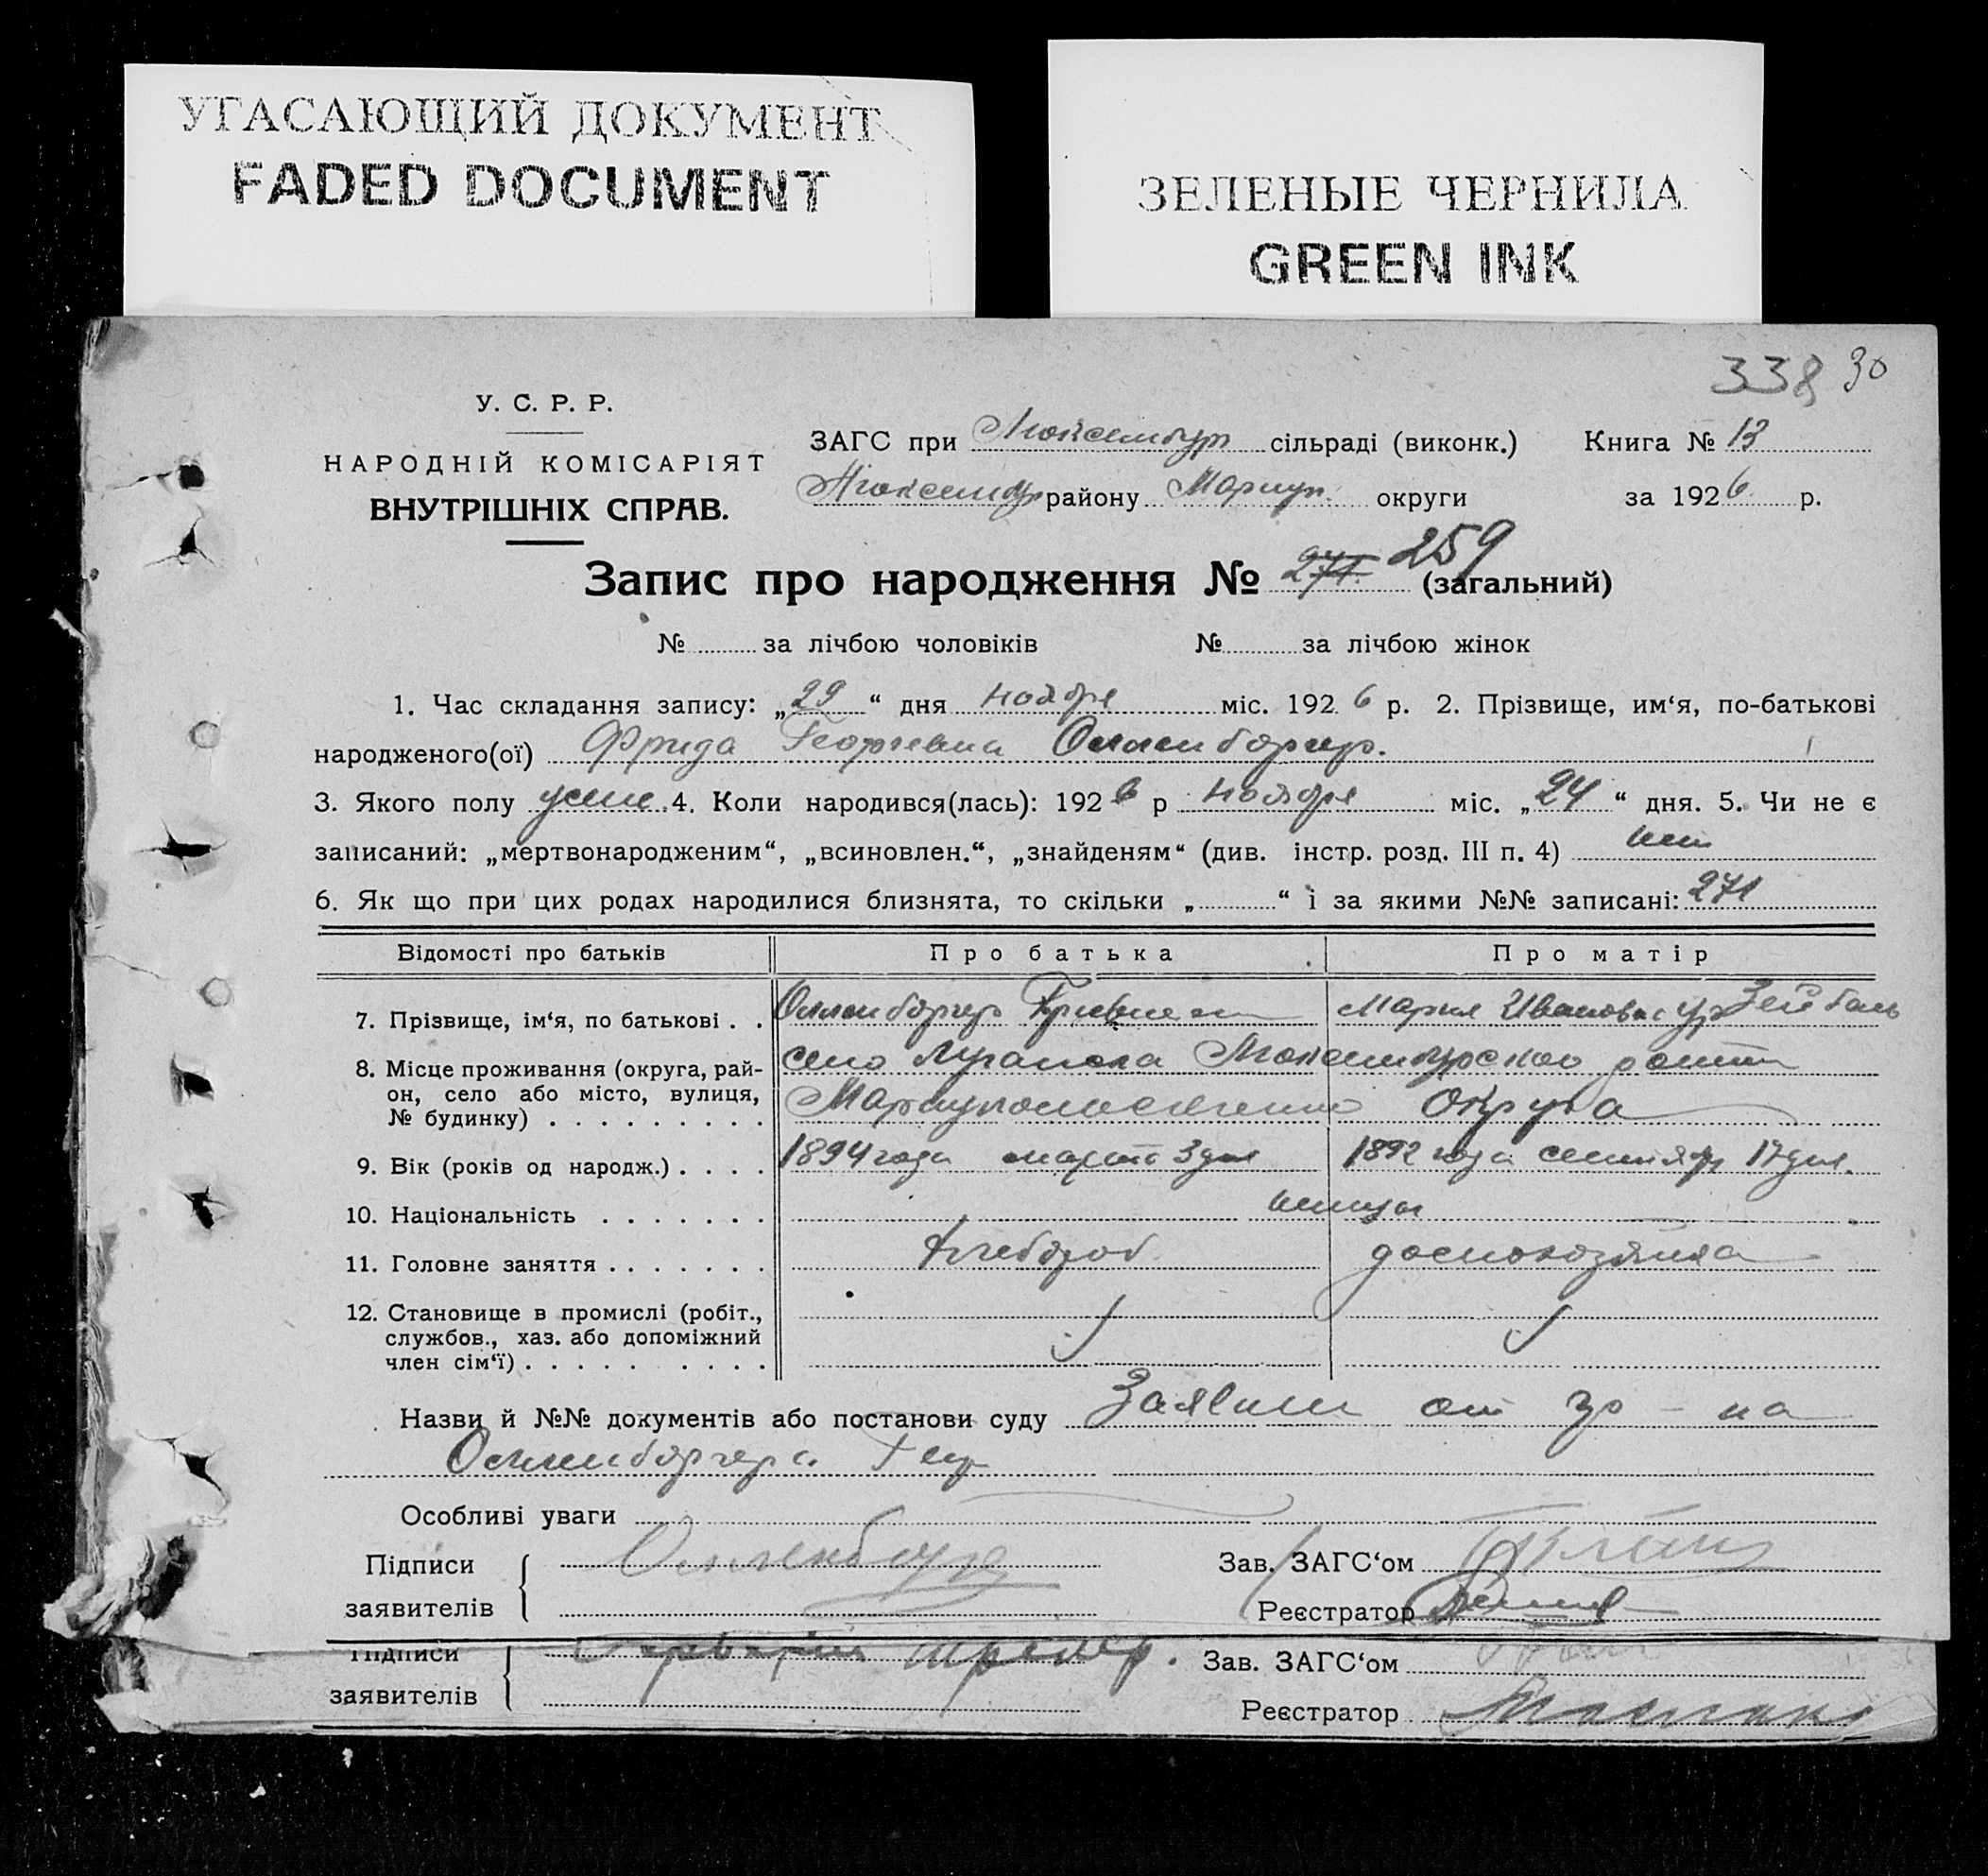 УГАСАЮЩИЙ ДОКУМЕНТ
FADED DOCUMENT
ЗЕЛЕНЫЕ ЧЕРНИЛА
GREEN INK
338 30
У. С. Р. Р.
НАРОДНІЙ КОМІСАРІЯТ
ВНУТРІШНІХ СПРАВ.
ЗАГС при Люксембург сільраді (виконк.) Книга № 13
Люксембур району Мариуп. округи за 1926 р.
Запис про народження № 271. 259 (загальний)
№ за лічбою чоловіків № за лічбою жінок
1. Час складання запису: „29“ дня ноября міс. 1926 р. 2. Прізвище, им‘я, по-батькові
народженого(ої) Фрида Георгиевна Олленбергер.
3. Якого полу 4. Коли народився(лась): 1926 р ноября міс. „24“ дня. 5. Чи не є
записаний: „мертвонародженим“, „всиновлен.“, „знайденям“ (див. інстр. розд. III п. 4) нет
6. Як що при цих родах народилися близнята, то скільки „ “ і за якими №№ записані: 271
Відомості про батьків Про батька Про матір
7. Прізвище, ім‘я, по батькові . . Мария Ивановна ур
8. Місце проживання (округа, рай-
он, село або місто, вулиця,
№ будинку) . . . . . . . . .
село Люксембургского
Округа
9. Вік (років од народж.) . . . . 1894 года марта 3 дня 1892 года сентябр 17 дня.
10. Національність . . . . . . . немцы
11. Головне заняття . . . . . . . Хлебороб домохозяйка
12. Становище в промислі (робіт.,
службов., хаз. або допоміжний
член сім‘ї) . . . . . . . . .
Назви й №№ документів або постанови суду Заявлен от гр-на
Олленбергера Геор
Особливі уваги
Підписи
заявителів
Зав. ЗАГС‘ом
Реєстратор
Підписи
заявителів
Зав. ЗАГС‘ом
Реєстратор